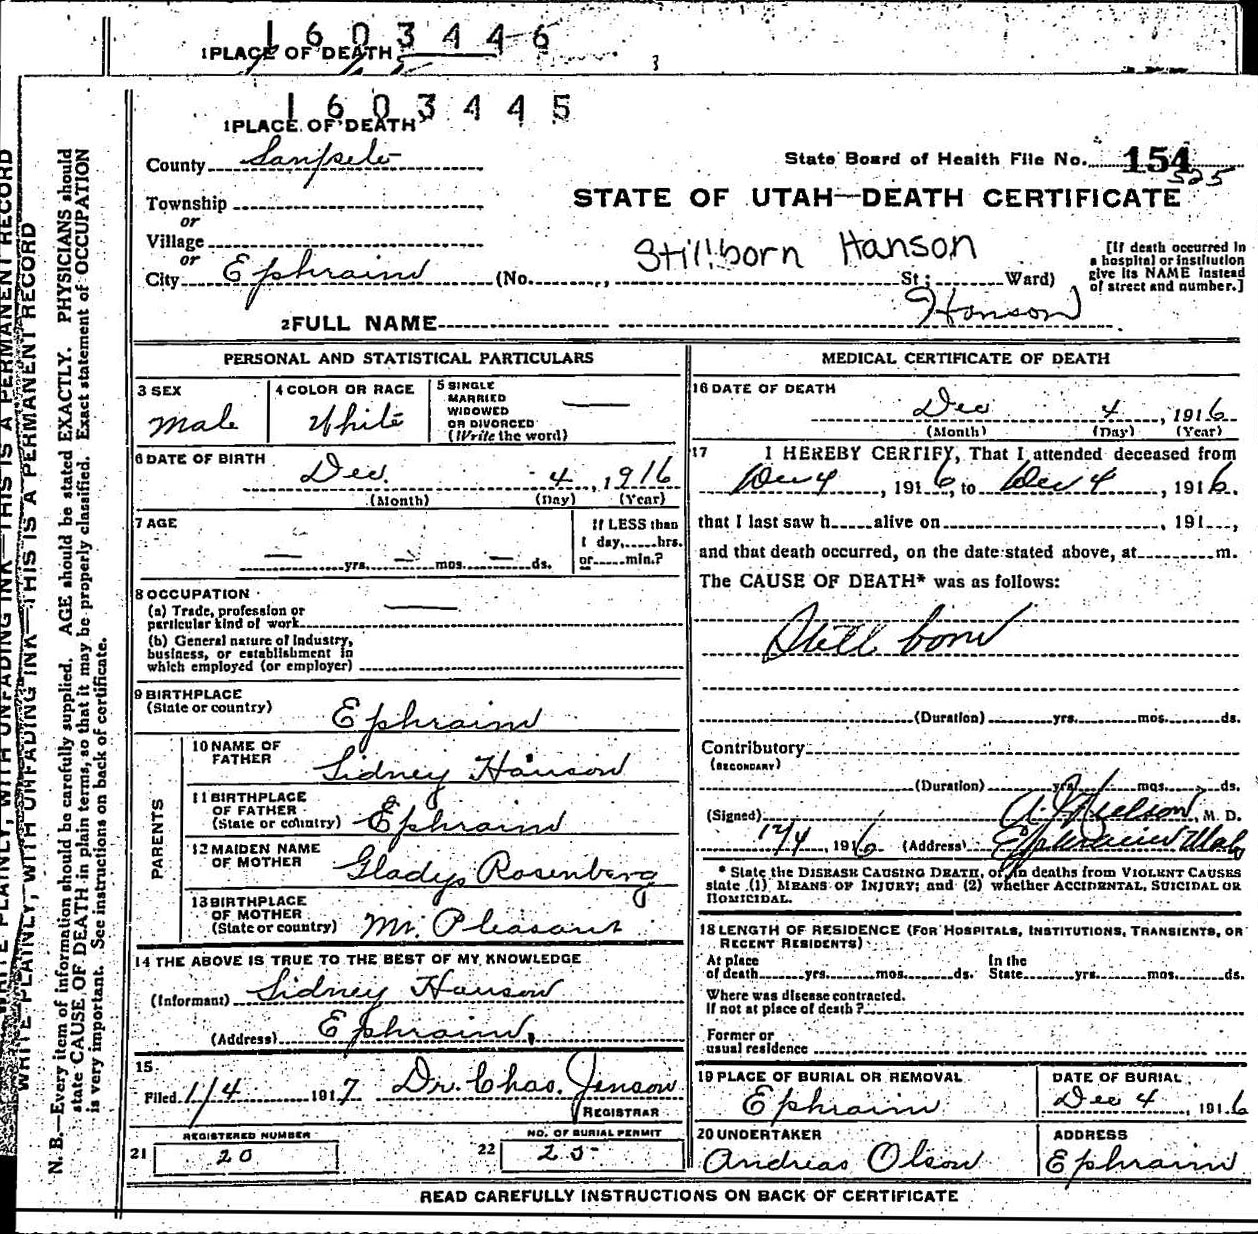 1603446
1 PLACE OF DEATH
1603445
1 PLACE OF DEATH
County Sanpete
State Board of Health File No. 154
525
Township
STATE OF UTAH—DEATH CERTIFICATE
or
Village
or
Stillborn Hanson
[If death occurred in a hospital or institution give its NAME instead of street and number.]
City Ephraim (No. , St; Ward)
2 FULL NAME Hanson
PERSONAL AND STATISTICAL PARTICULARS
3 SEX
male
4 COLOR OR RACE
White
5 SINGLE
MARRIED
WIDOWED
OR DIVORCED
(Write the word) —
6 DATE OF BIRTH
Dec. 4, 1916
(Month) (Day) (Year)
7 AGE
— yrs. — mos. — ds.
If LESS than
1 day, hrs.
or min.?
8 OCCUPATION
(a) Trade, profession or
particular kind of work —
(b) General nature of Industry,
business, or establishment in
which employed (or employer)
9 BIRTHPLACE
(State or country) Ephraim
PARENTS
10 NAME OF
FATHER Sidney Hanson
11 BIRTHPLACE
OF FATHER
(State or country) Ephraim
12 MAIDEN NAME
OF MOTHER Gladys Rosenberg
13 BIRTHPLACE
OF MOTHER
(State or country) Mt. Pleasant
14 THE ABOVE IS TRUE TO THE BEST OF MY KNOWLEDGE
(Informant) Sidney Hanson
(Address) Ephraim.
15
Filed 1/4 1917 Dr. Chas. Jenson
REGISTRAR
REGISTERED NUMBER
21 20
NO. OF BURIAL PERMIT
22
MEDICAL CERTIFICATE OF DEATH
16 DATE OF DEATH
Dec 4, 1916
(Month) (Day) (Year)
17 I HEREBY CERTIFY, That I attended deceased from
Dec 4, 1916, to Dec 4, 1916.
that I last saw h alive on , 191 ,
and that death occurred, on the date stated above, at m.
The CAUSE OF DEATH* was as follows:
Still born
(Duration) yrs. mos. ds.
Contributory
(SECONDARY)
(Duration) yrs. mos. ds.
(Signed) Nielson, M. D.
12/4, 1916 (Address) Ephraim Utah
* State the DISEASE CAUSING DEATH, or, in deaths from VIOLENT CAUSES
state (1) MEANS OF INJURY; and (2) whether ACCIDENTAL, SUICIDAL OR
HOMICIDAL.
18 LENGTH OF RESIDENCE (FOR HOSPITALS, INSTITUTIONS, TRANSIENTS, OR
RECENT RESIDENTS)
At place
of death yrs. mos. ds.
In the
State yrs. mos. ds.
Where was disease contracted.
If not at place of death?
Former or
usual residence
19 PLACE OF BURIAL OR REMOVAL
Ephraim
DATE OF BURIAL
Dec 4, 1916
20 UNDERTAKER
Andreas Olson
ADDRESS
Ephraim
READ CAREFULLY INSTRUCTIONS ON BACK OF CERTIFICATE
WRITE PLAINLY, WITH UNFADING INK—THIS IS A PERMANENT RECORD
WRITE PLAINLY, WITH UNFADING INK—THIS IS A PERMANENT RECORD
N. B.—Every item of information should be carefully supplied. AGE should be stated EXACTLY. PHYSICIANS should
state CAUSE OF DEATH in plain terms, so that it may be properly classified. Exact statement of OCCUPATION
is very important. See instructions on back of certificate.